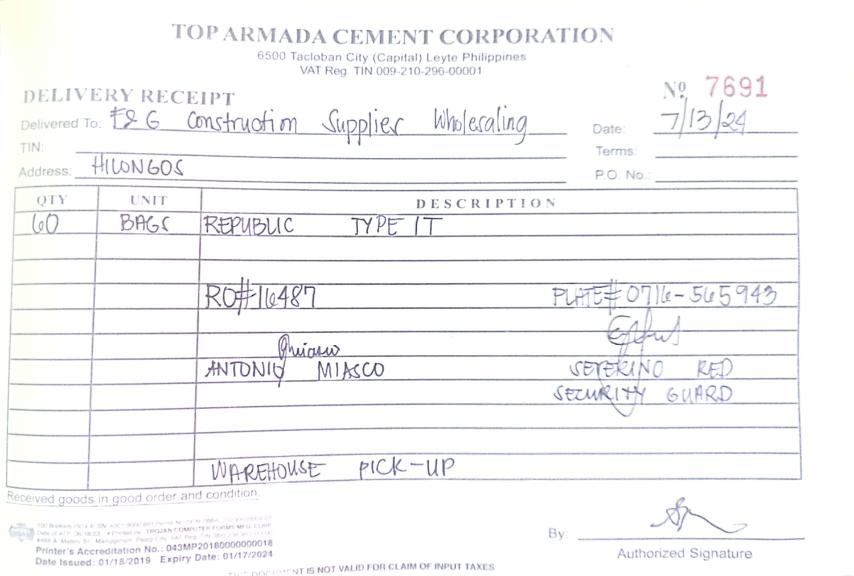 TOP ARMADA CEMENT CORPORATION
6500 Tacloban City (Capital) Leyte Philippines
VAT Reg. TIN 009-210-296-00001
DELIVERY RECEIPT
Nº 7691
Delivered To: E&G Construction Supplier Wholesaling
Date: 7/13/24
TIN:
Terms:
Address: HILONGOS
P.O. No.:
QTY UNIT DESCRIPTION
60 BAGS REPUBLIC TYPE IT
RO#16487 PLATE# 0716-565943
ANTONIO MIASCO SEVERINO RED
SECURITY GUARD
WAREHOUSE PICK-UP
Received goods in good order and condition.
Printer's Accreditation No.: 043MP20180000000018
Date Issued: 01/18/2019 Expiry Date: 01/17/2024
By:
Authorized Signature
THIS DOCUMENT IS NOT VALID FOR CLAIM OF INPUT TAXES